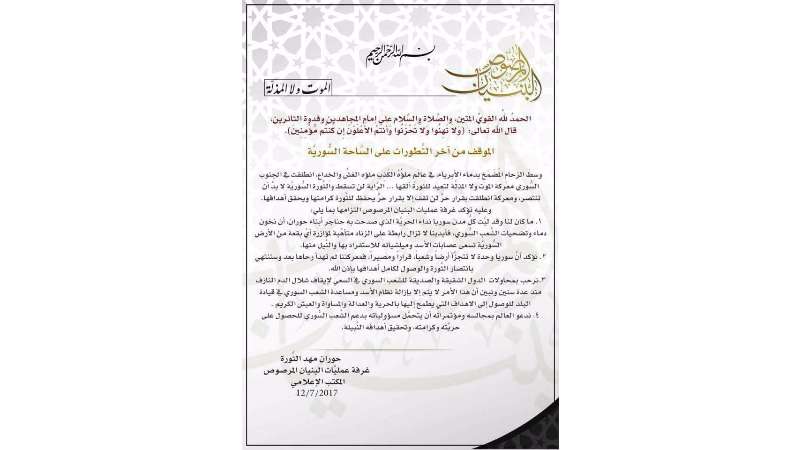 بسم الله الرحمن الرحيم
البنيان المرصوص
الموت ولا المذلّة
الحمدُ للّه القويّ المتين، والصّلاة والسّلام على إمام المجاهدين وقدوة الثائرين،
قال الله تعالى: (ولا تهنُوا ولا تَحْزَنُوا وأنتُمُ الأعْلَوْنَ إن كُنتُم مُّؤمِنِين).
الموقف من آخر التّطورات على السّاحة السُّوريّة
وسط الزحام المضمخ بدماء الأبرياء، في عالم ملؤه الكذب ملؤه الغشّ والخداع، انطلقت في الجنوب
السّوري معركة الموت ولا المذلة لتعيد للثورة ألقها ... الرّاية لن تسقط والثّورة السّوريّة لا بدّ أن
تنتصر، ومعركة انطلقت بقرار حرّ لن تقف إلا بقرار حرّ يحفظ للثورة كرامتها ويحقق أهدافها.
وعليه تؤكد غرفة عمليات البنيان المرصوص التزامها بما يلي:
١. ما كان لنا وقد لبّت كل مدن سوريا نداء الحريّة الذي صدحت به حناجر أبناء حوران، أن نخون
دماء وتضحيات الشعب السّوري، فأيدينا لا تزال رابطة على الزناد متأهبة لمؤازرة أيّ بقعة من الأرض
السّوريّة تسعى عصابات الأسد وميلشياته للاستفراد بها والنّيل منها.
٢. نؤكد أن سوريا وحدة لا تتجزّأ أرضاً وشعباً، قراراً ومصيراً، فمعركتنا لم تهدأ رحاها بعد وستنتهي
بانتصار الثورة والوصول لكامل أهدافها بإذن الله.
٣. نرحب بمحاولات الدول الشقيقة والصديقة للشعب السوري في السعي لإيقاف شلال الدم النازف
منذ عدة سنين ونبين أن هذا الأمر لا يتم إلا بإزالة نظام الأسد ومساعدة الشعب السوري في قيادة
البلد للوصول إلى الاهداف التي يطمح إليها بالحرية والعدالة والمساواة والعيش الكريم.
٤. ندعو العالم بمجالسه ومؤتمراته أن يتحمّل مسؤولياته بدعم الشعب السّوري للحصول على
حريّته وكرامته، وتحقيق أهدافه النّبيلة.
حوران مهد الثّورة
غرفة عمليّات البنيان المرصوص
المكتب الإعلامي
12/7/2017